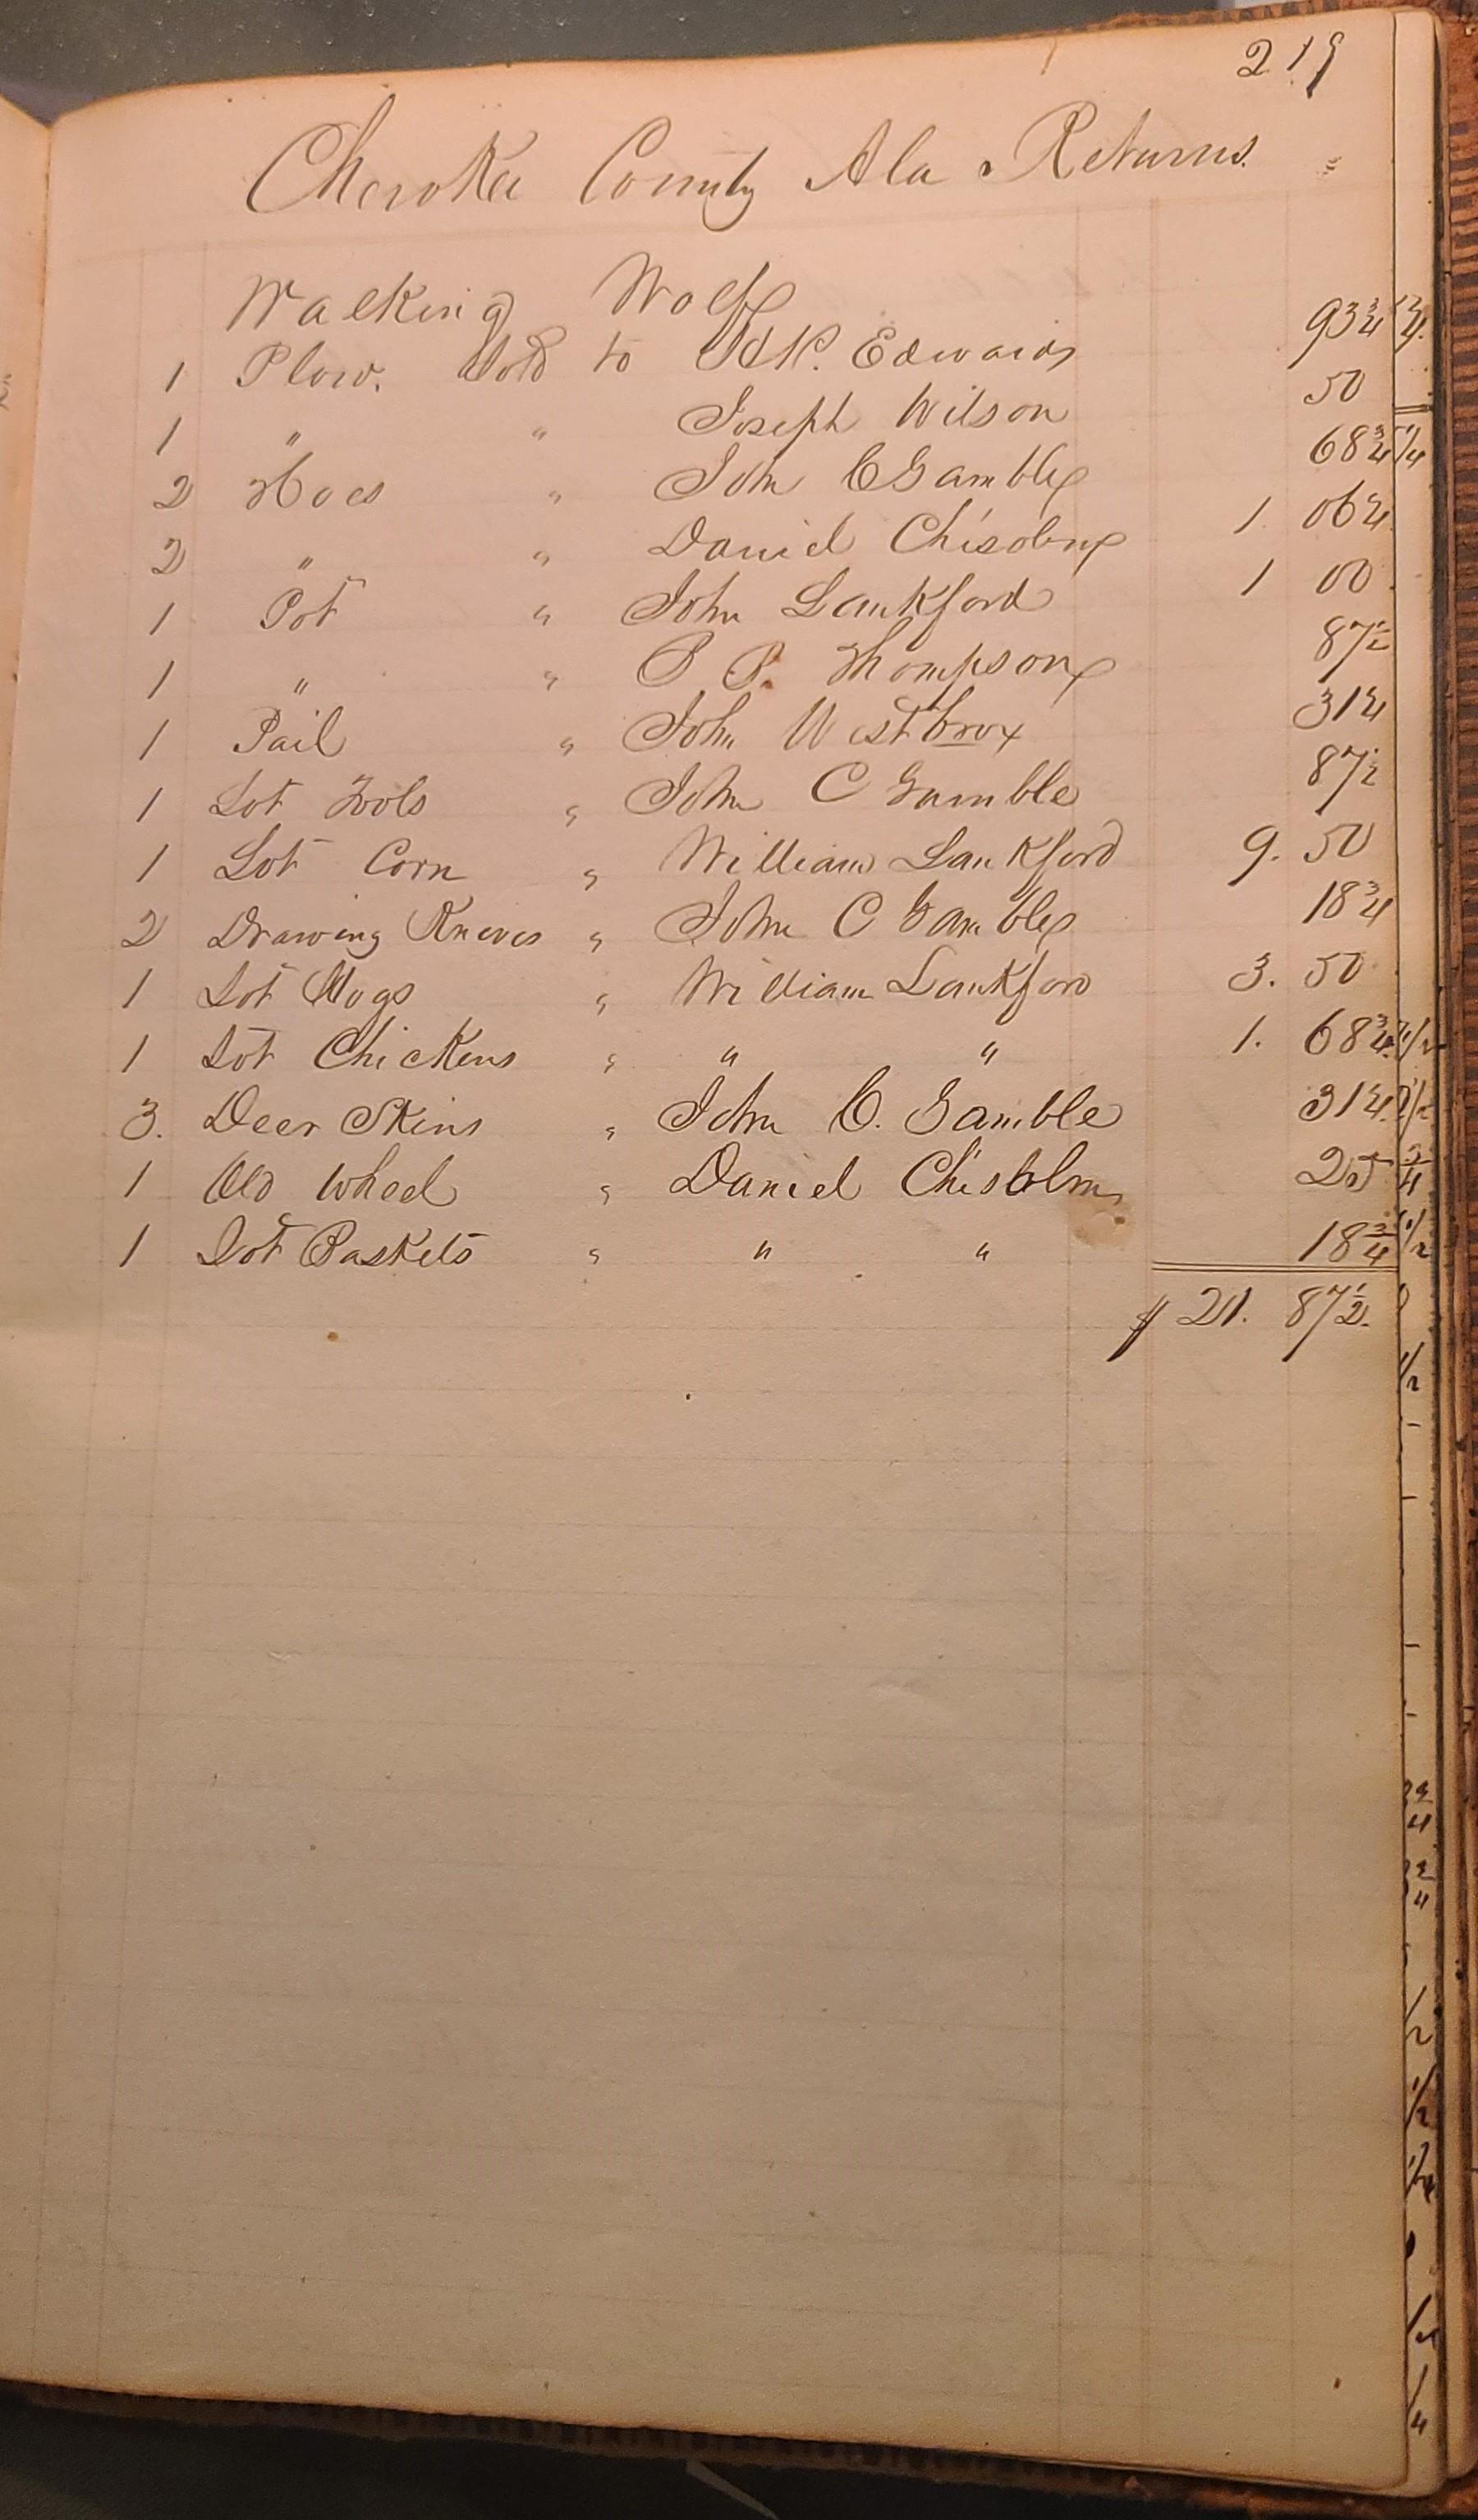 219
Cherokee County Ala Returns.
Walking Wolf
1 Plow. Sold to Edwards 93 3/4
1 " " Joseph Wilson 50
2 Hoes " John C Gamble 68 3/4
2 " " Daniel Chisolm 1. 06 1/4
1 Pot " John Lankford 1 00
1 " " Thompson 87 1/2
1 Pail " John Westbrox 31 1/4
1 Lot Tools " John C Gamble 87 1/2
1 Lot Corn " William Lankford 9. 50
2 Drawing Knives " John C Gamble 18 3/4
1 Lot Hogs " William Lankford 3. 50
1 Lot Chickens " " " 1. 68 3/4
3. Deer Skins " John C. Gamble 31 1/4
1 Old Wheel " Daniel Chisolm 25
1 Lot Baskets " " " 18 3/4
$ 21. 87 1/2.